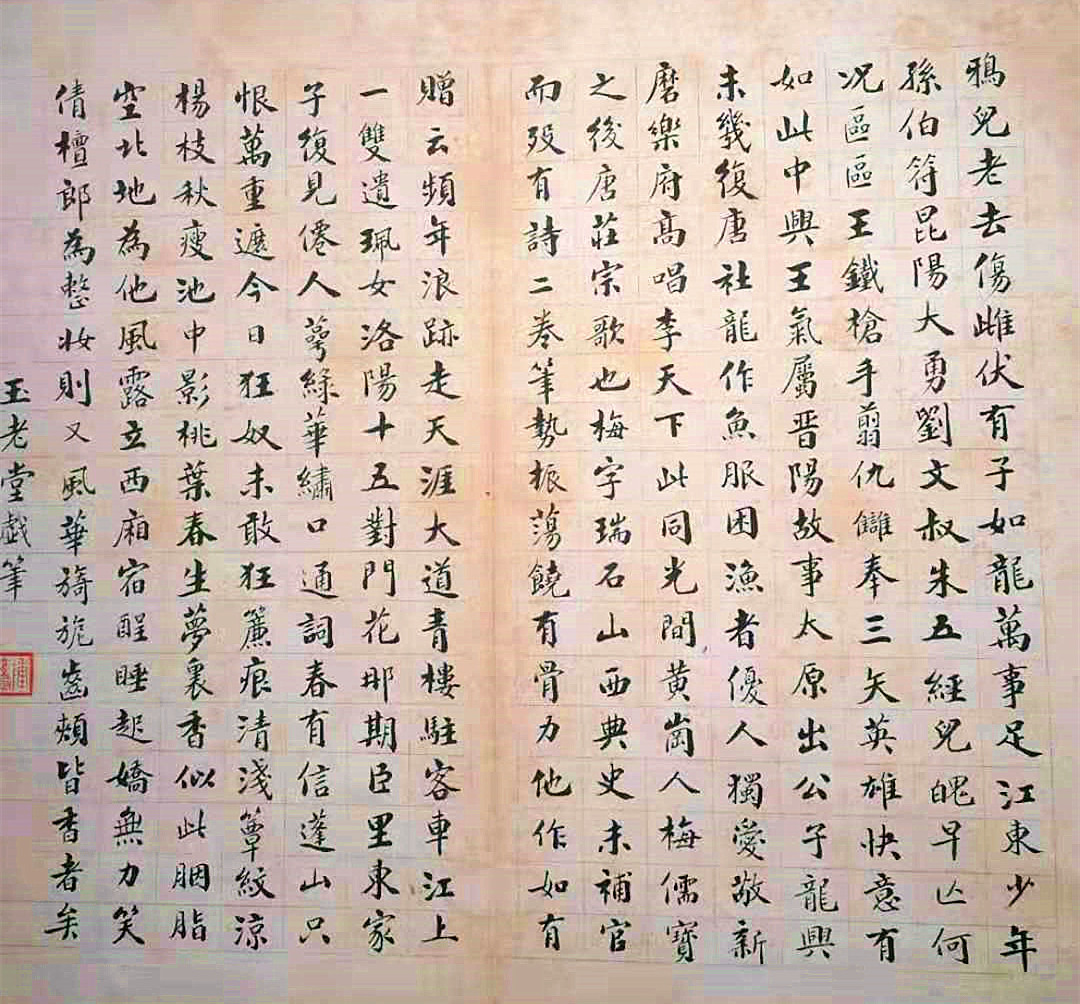 鴉兒老去傷雌伏有子如龍萬事足江東少年
孫伯符昆陽大勇劉文叔朱五經兒魄早亡何
况區區王鐵槍手翦仇讎奉三矢英雄快意有
如此中興王氣屬晋陽故事太原出公子龍興
未幾復唐社龍作魚服困漁者優人獨愛敬新
磨樂府高唱李天下此同光間黃崗人梅儒寶
之後唐莊宗歌也梅字瑞石山西典史未補官
而歿有詩二卷筆勢振蕩饒有骨力他作如有
贈云頻年浪跡走天涯大道青樓駐客車江上
一雙遺珮女洛陽十五對門花那期臣里東家
子復見僊人萼綠華繡口通詞春有信蓬山只
恨萬重遮今日狂奴未敢狂簾痕清淺簟紋涼
楊枝秋瘦池中影桃葉春生夢裏香似此胭脂
空北地為他風露立西廂宿酲睡起嬌無力笑
倩檀郎為整妝則又風華旖旎齒頰皆香者矣
玉老堂戲筆